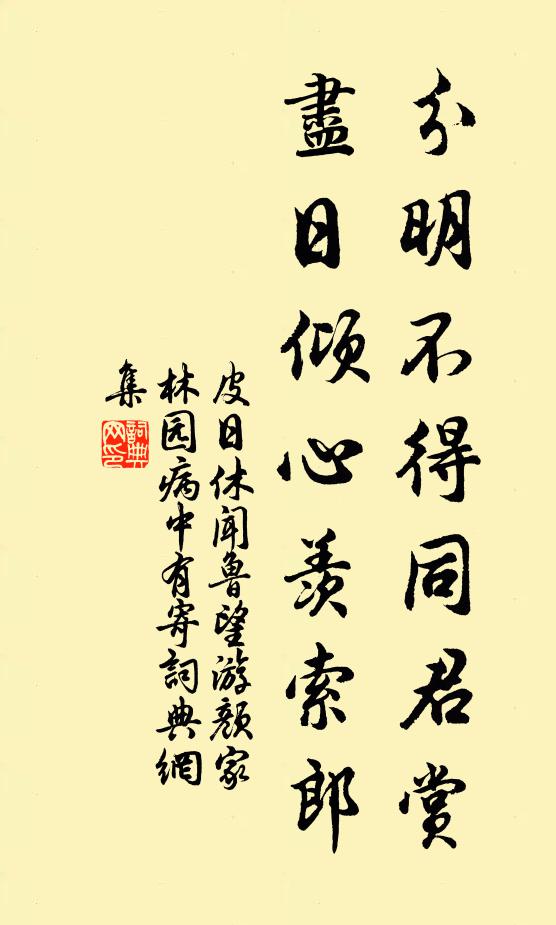 分明不得同君賞
盡日傾心羨索郎
皮日休聞魯望游顏家
林园病中有寄詞典網
集
詞典网印